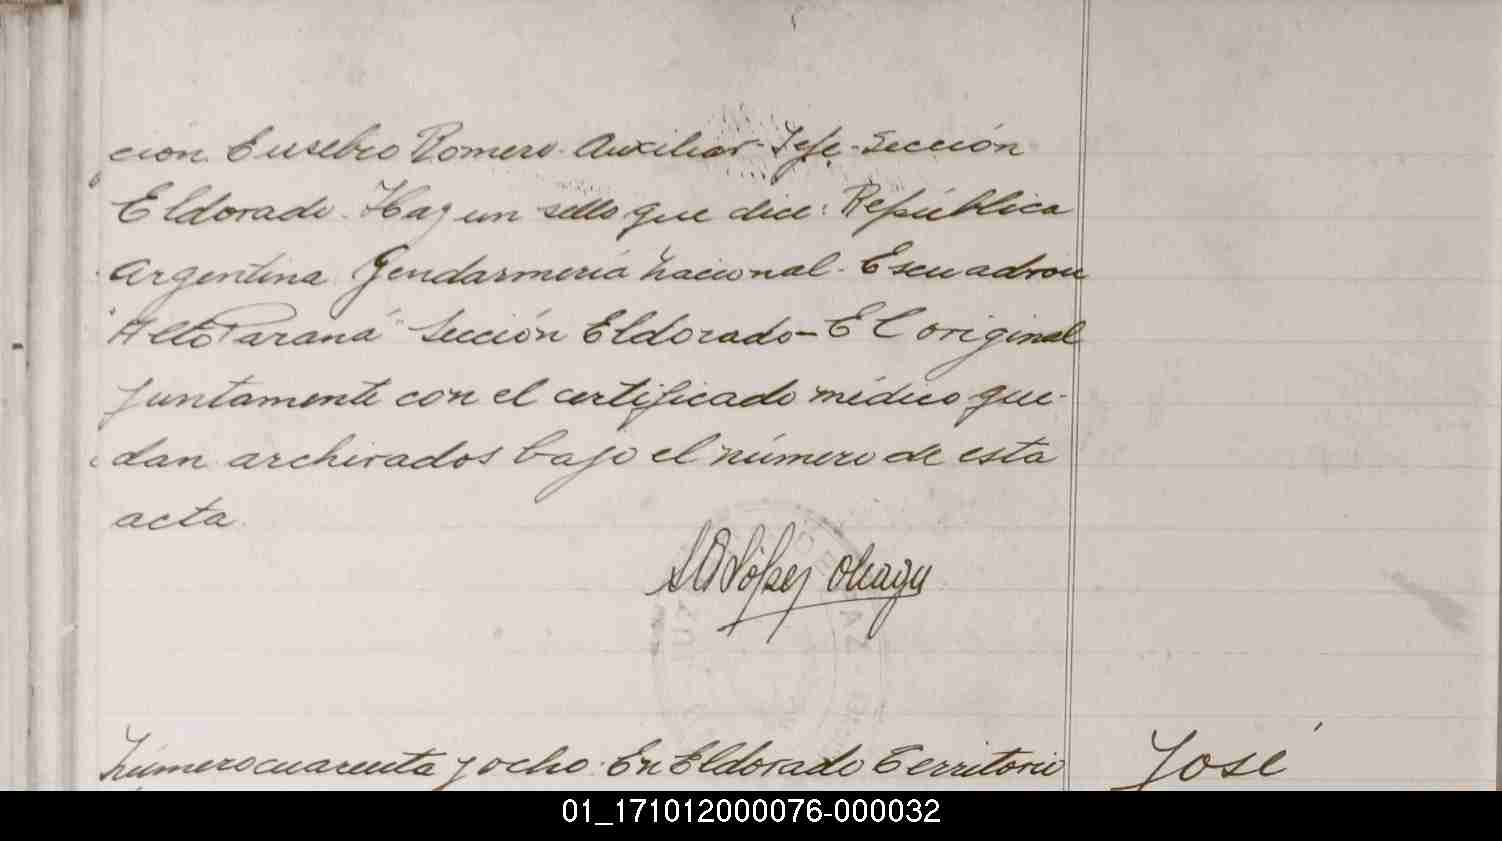 cion. Eusebio Romero. Auxiliar - Jefe - Sección
Eldorado. Hay un sello que dice: República
Argentina Gendarmería Nacional - Escuadron
"Alto Paraná" Sección Eldorado - El original
juntamente con el certificado médico que-
dan archivados bajo el número de esta
acta.
López
Número cuarenta y ocho. En Eldorado Territorio
José
01_171012000076-000032